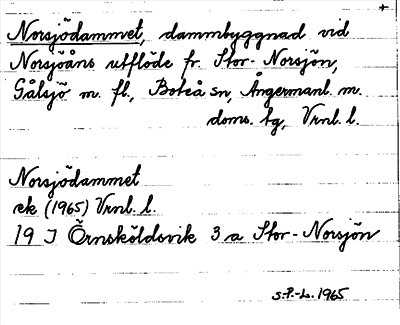 +
Norsjödammet, dammbyggnad vid
Norsjöåns utflöde fr. Stor-Norsjön,
Gålsjö m. fl., Boteå sn, Ångermanl. m.
doms. tg, Vrnl. l.
Norsjödammet
ek (1965) Vrnl. l.
19 J Örnsköldsvik 3 a Stor-Norsjön
S.P.-L. 1965